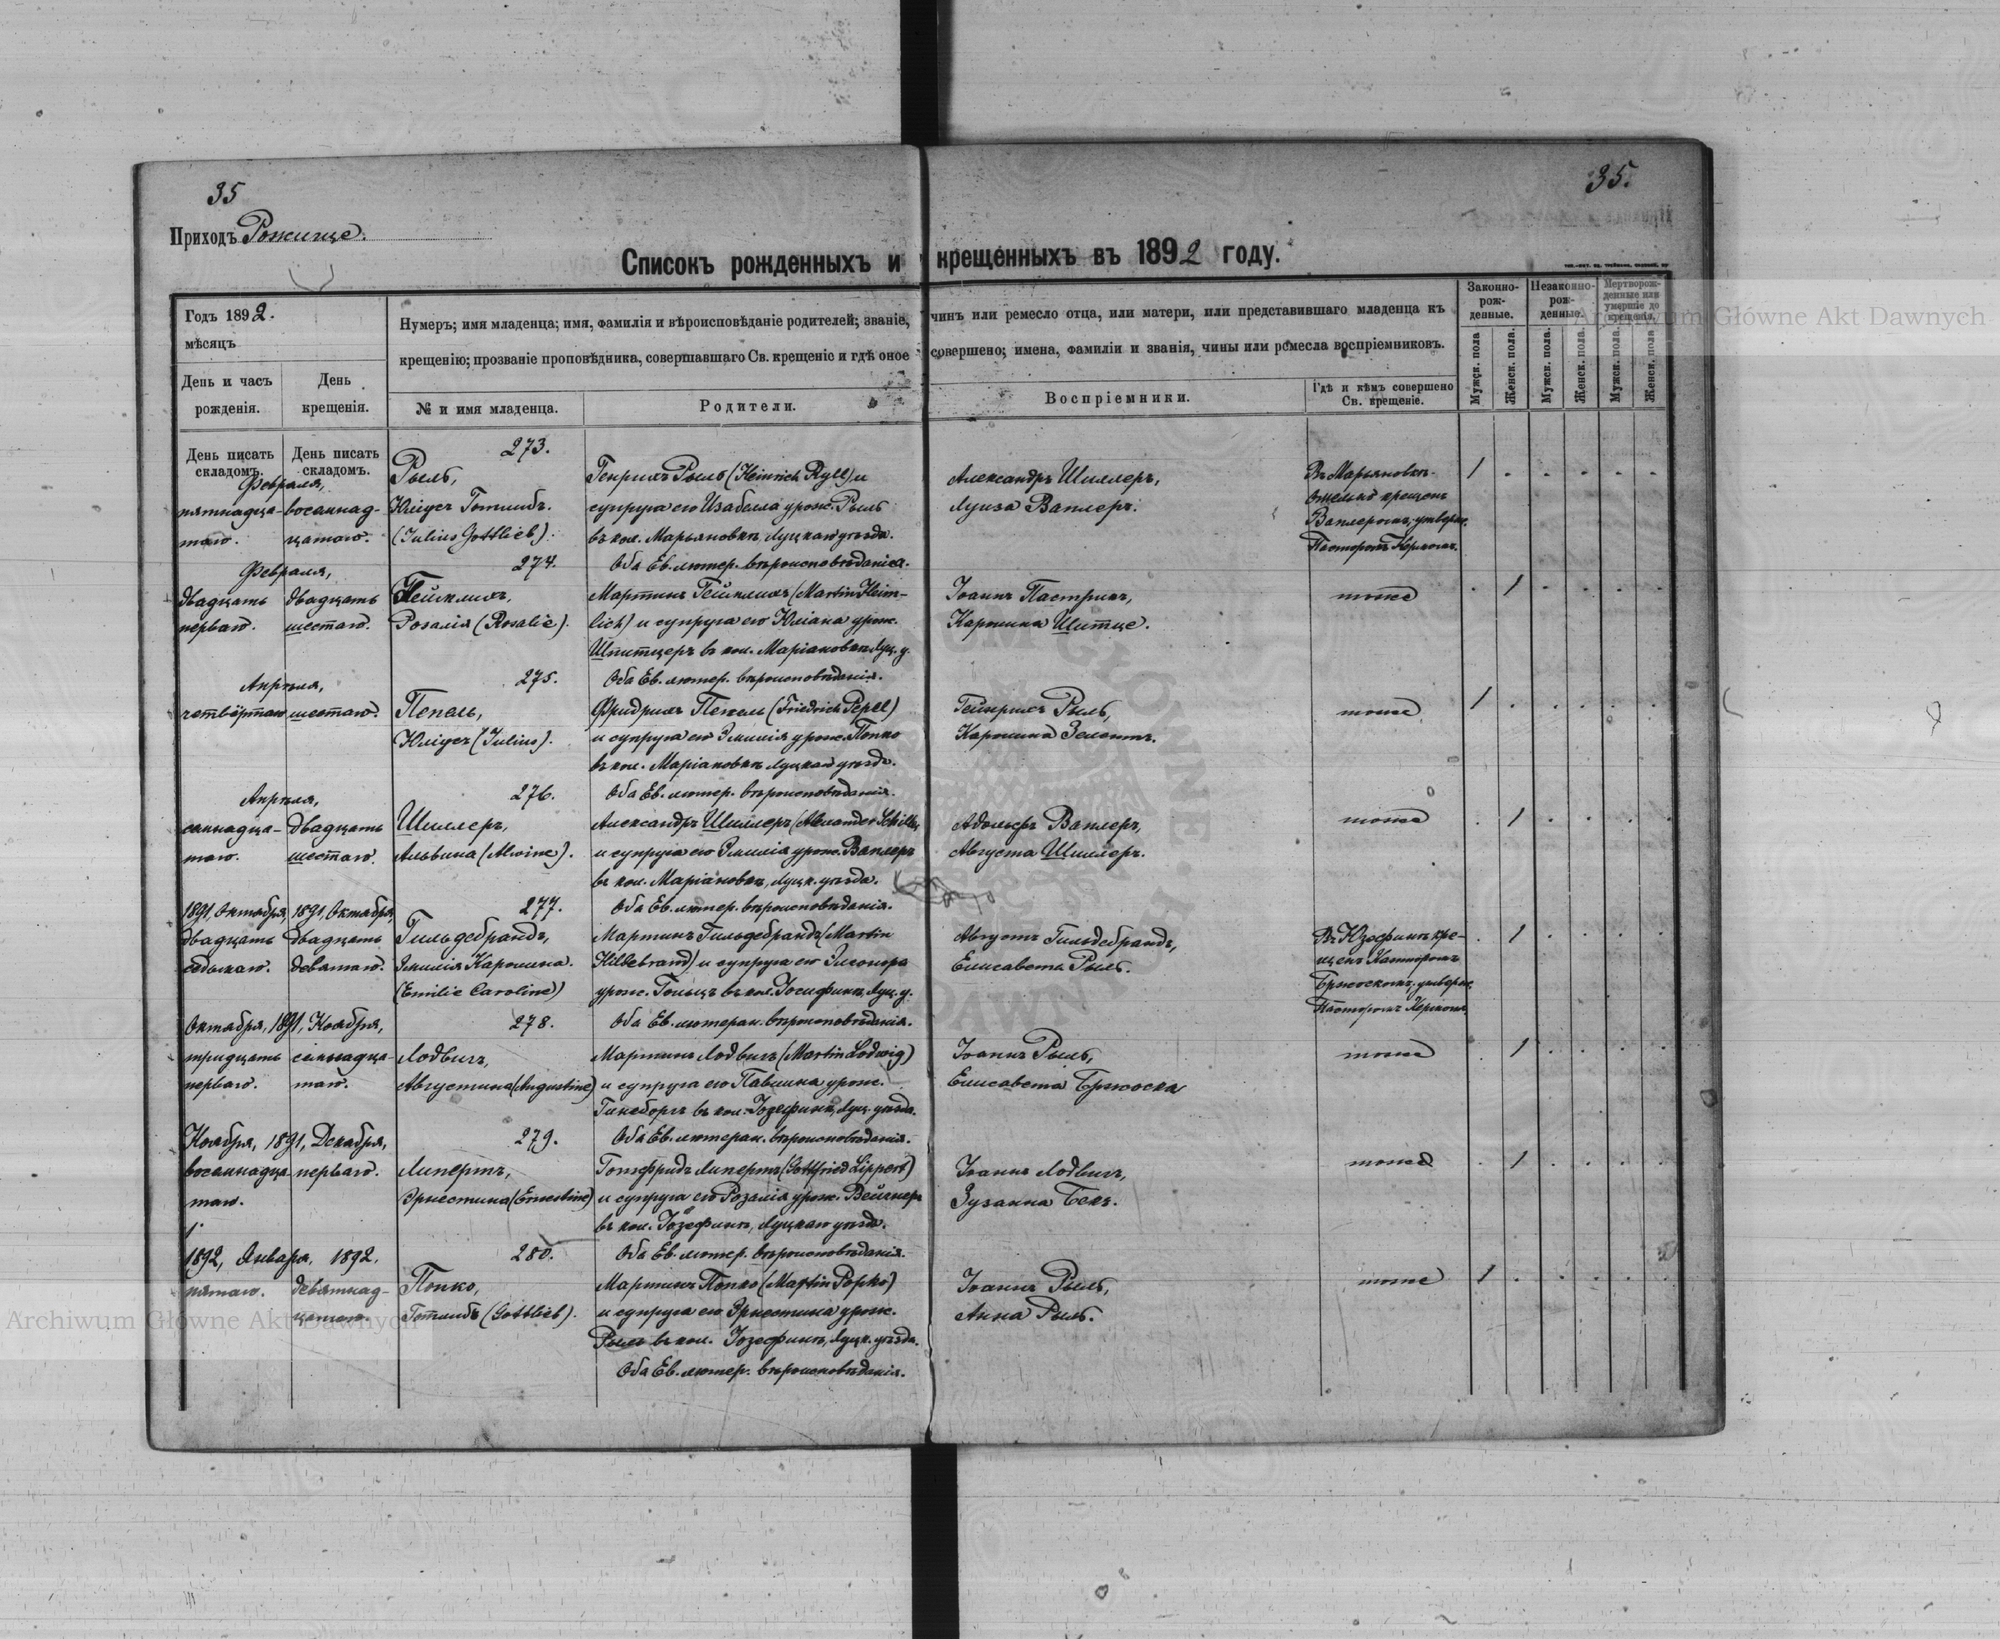 35
35.
Приходъ Рожище.
Списокъ рожденныхъ и крещенныхъ въ 1892 году.
Годъ 1892.
мѣсяцъ
День и часъ рожденія.
День крещенія.
Нумеръ; имя младенца; имя, фамилія и вѣроисповѣданіе родителей; званіе, чинъ или ремесло отца, или матери, или представившаго младенца къ
крещенію; прозваніе проповѣдника, совершавшаго Св. крещеніе и гдѣ оное совершено; имена, фамиліи и званія, чины или ремесла воспріемниковъ.
№ и имя младенца.
Родители.
Воспріемники.
Гдѣ и кѣмъ совершено Св. крещеніе.
Законно-рож-денные.
Незаконно-рож-денные.
Мертворож-денные или умершіе до крещенія.
Мужск. пола
Женск. пола.
Мужск. пола.
Женск. пола.
Мужск. пола.
Женск. пола.
День писать складомъ.
День писать складомъ.
273.
Февраля,
пятнадца- восемнад-
таго. цатаго.
Рыль,
Юліусъ Готлибъ.
(Julius Gottlieb).
Генрихъ Рыль (Heinrich Ryll) и
супруга его Изабелла урож. Рыль
въ кол. Марьяновкѣ, Луцкаго уѣзда.
Оба Ев. лютер. вѣроисповѣданія.
Александръ Шиллеръ,
Луиза Ваплеръ.
Въ Марьяновкѣ
крещенъ
Ваплеромъ, утверж.
Пасторомъ
1
274.
Февраля,
двадцать двадцать
перваго. шестаго.
Геймлихъ,
Розалія (Rosalie).
Мартинъ Геймлихъ (Martin Heim-
lich) и супруга его Юліана урож.
Шпитцеръ въ кол. Маріановкѣ Луц. у.
Оба Ев. лютер. вѣроисповѣданія.
Іоаннъ Пастрикъ,
Каролина Шитце.
тоже
1
275.
Апрѣля,
четвёртаго шестаго.
Пепель,
Юліусъ (Julius).
Фридрихъ Пепель (Friedrich Pepel)
и супруга его Эмилія урож. Попко
въ кол. Маріановкѣ Луцкаго уѣзда.
Оба Ев. лютер. вѣроисповѣданія.
Гейнрихъ Рыль,
Каролина
тоже
1
276.
Апрѣля,
семнадца- двадцать
таго. шестаго.
Шиллеръ,
Альвина (Alwine).
Александръ Шиллеръ (Alexander Schiller)
и супруга его Эмилія урож. Ваплеръ
въ кол. Маріановкѣ, Луцк. уѣзда.
Оба Ев. лютер. вѣроисповѣданія.
Адольфъ Ваплеръ,
Августа Шиллеръ.
тоже
1
277.
1891, Октября, 1891, Октября,
двадцать двадцать
седьмаго. девятаго.
Гильдебрандъ,
Эмилія Каролина.
(Emilie Caroline)
Мартинъ Гильдебрандъ (Martin
Hildebrand) и супруга его Элеонора
урож. Гольцъ въ кол. Іосифинѣ, Луц. у.
Оба Ев. лютеран. вѣроисповѣданія.
Августъ Гильдебрандъ,
Елисавета Рыль.
Въ Юзефинѣ кре-
щенъ Канторомъ
утверж.
Пасторомъ
1
278.
Октября, 1891, Ноября,
тридцать семнадца-
перваго. таго.
Лодвигъ,
Августина (Augustine)
Мартинъ Лодвигъ (Martin Lodwig)
и супруга его Павлина урож.
Гинсборгъ въ кол. Іозефинѣ, Луц. уѣзда.
Оба Ев. лютеран. вѣроисповѣданія.
Іоаннъ Рыль,
Елисавета
тоже
1
279.
Ноября, 1891, Декабря,
восемнадца перваго.
таго.
Липертъ,
Эрнестина (Ernestine)
Готфридъ Липертъ (Gottfried Lippert)
и супруга его Розалія урож. Вейгнеръ
въ кол. Іозефинѣ, Луцкаго уѣзда.
Оба Ев. лютер. вѣроисповѣданія.
Іоаннъ Лодвигъ,
Зузанна Бекъ.
тоже
1
280.
1892, Января, 1892.
пятаго. девятнад-
цатаго.
Попко,
Готлибъ (Gottlieb).
Мартинъ Попко (Martin Popko)
и супруга его Эрнестина урож.
Рыль въ кол. Іозефинѣ, Луцк. уѣзда.
Оба Ев. лютер. вѣроисповѣданія.
Іоаннъ Рыль,
Анна Рыль.
тоже
1
Archiwum Główne Akt Dawnych
Archiwum Główne Akt Dawnych